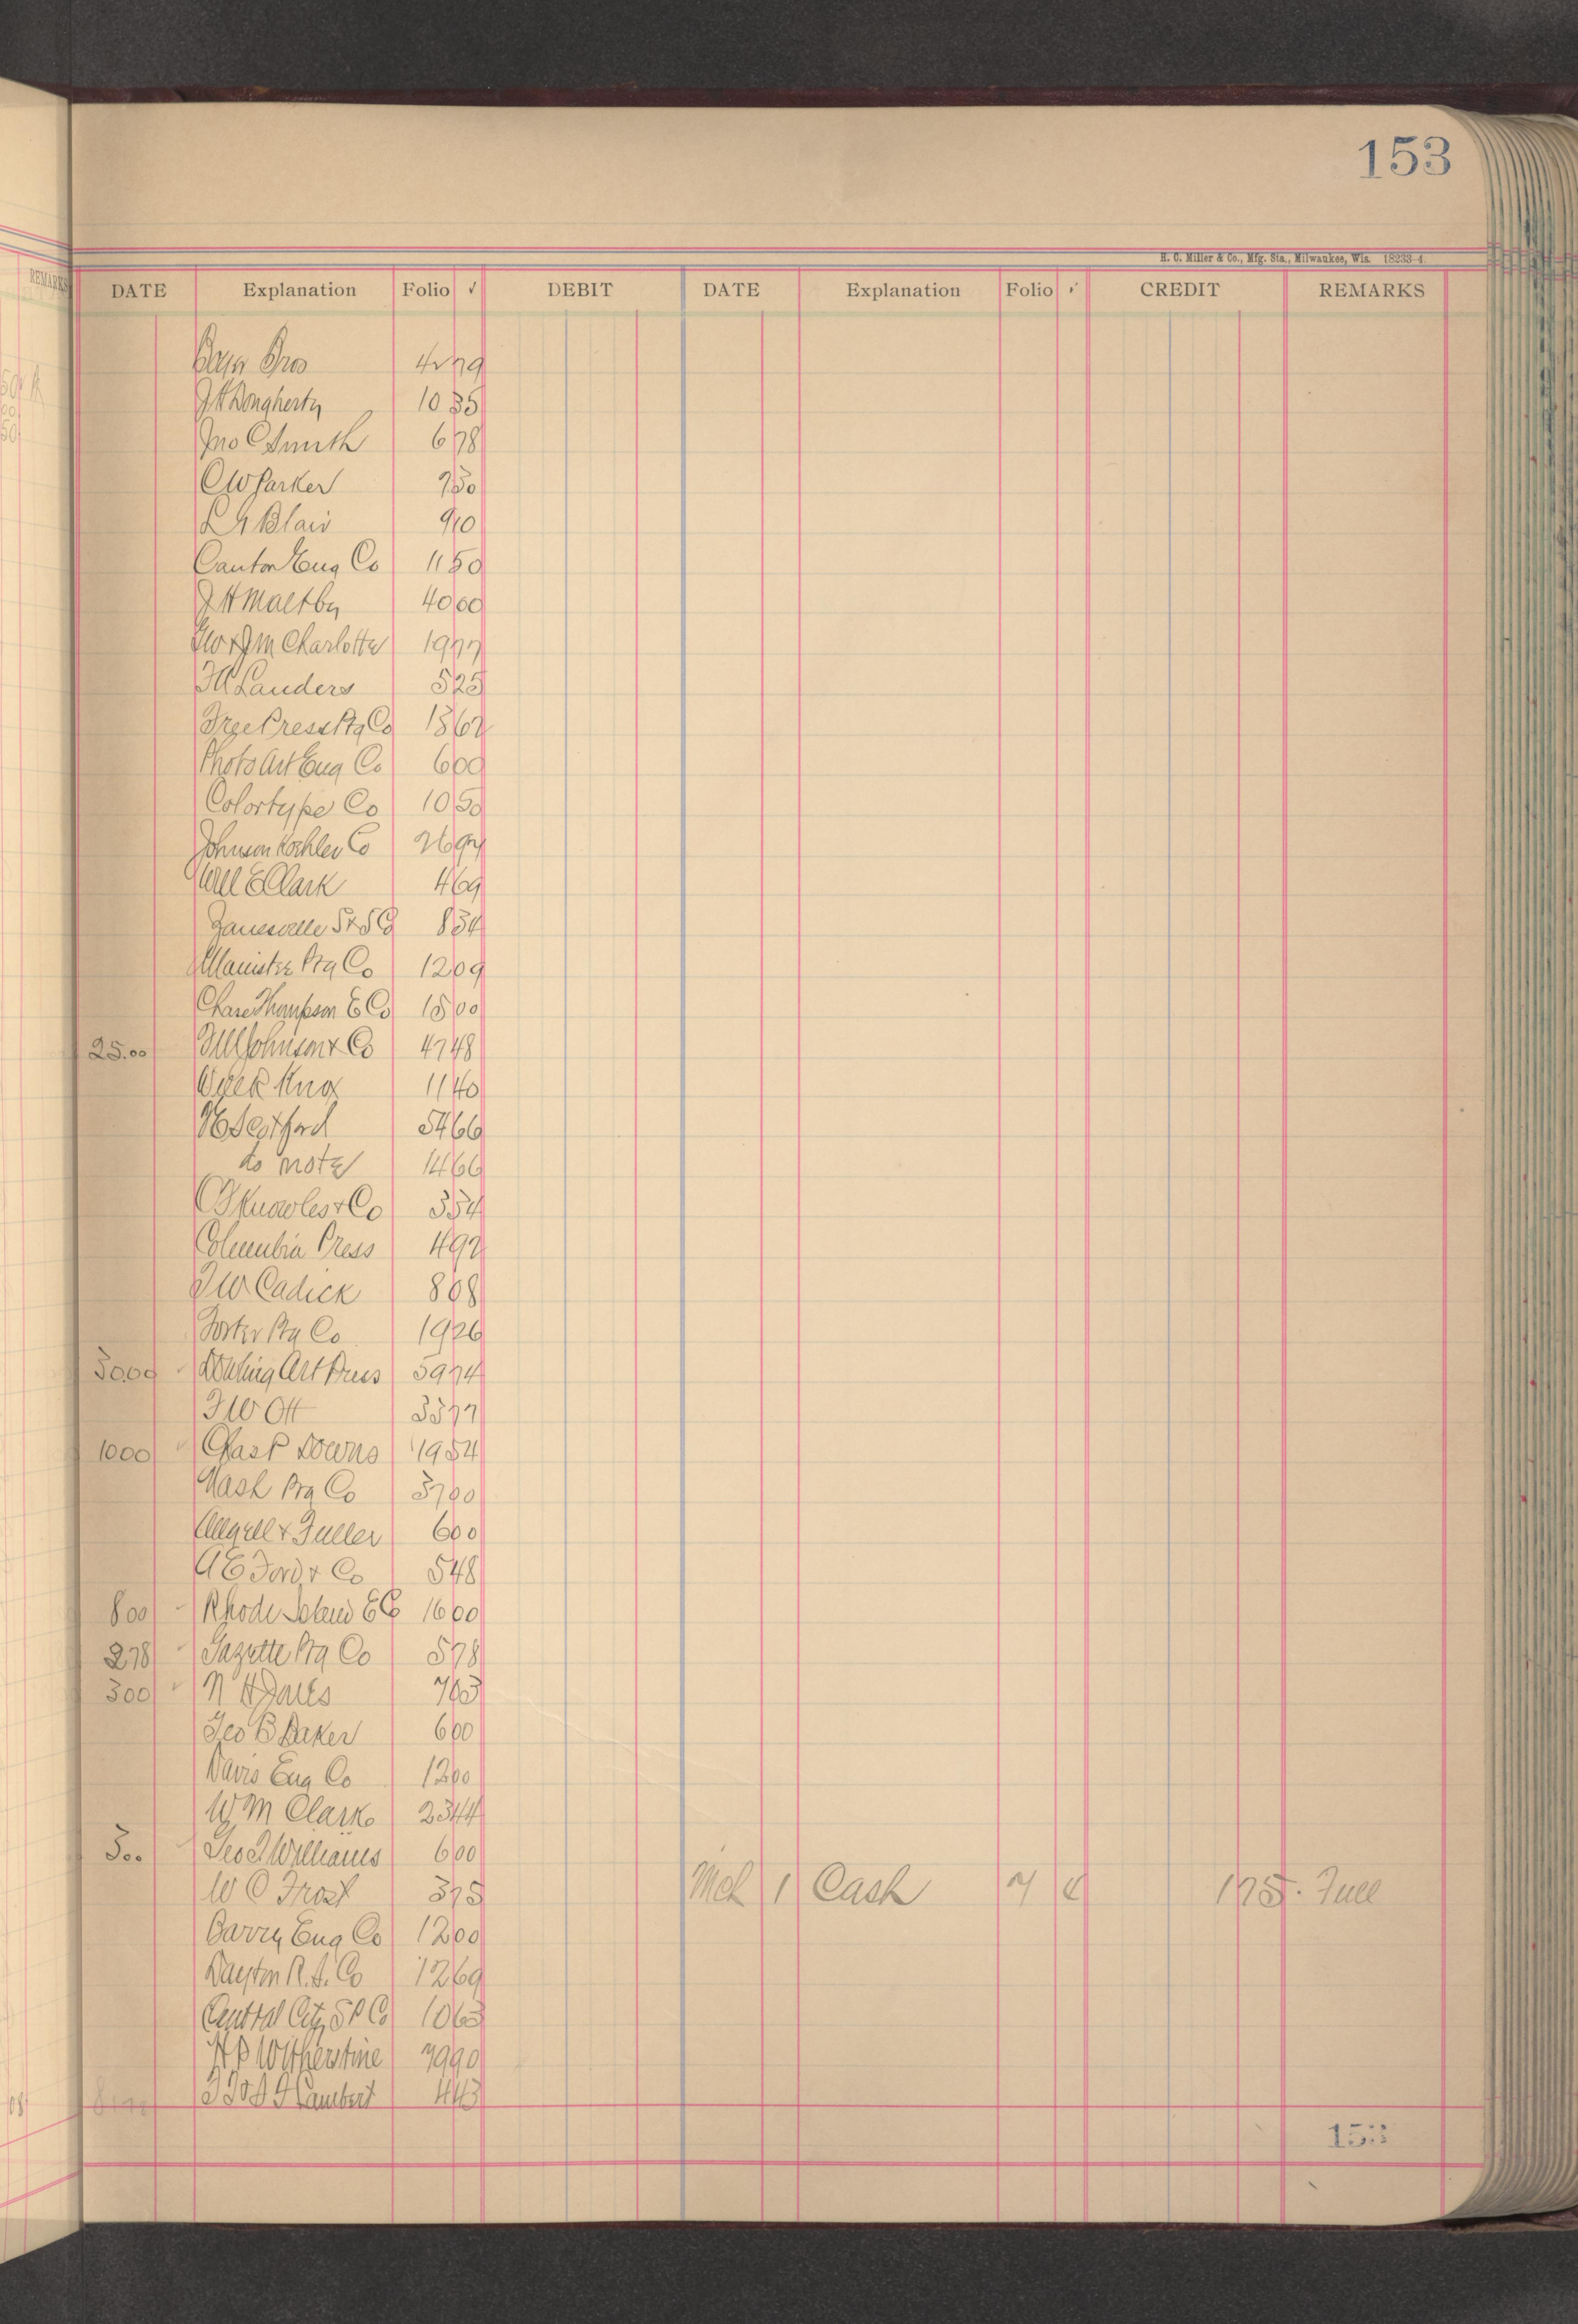 153
H. C. Miller & Co., Mfg. Sta., Milwaukee, Wis. 18233-4.
REMARKS
DATE Explanation Folio ✓ DEBIT DATE Explanation Folio ✓ CREDIT REMARKS
Bros 4279
J H Dougherty 1035
Jno C Smith 678
C W Parker 750
L G Blair 910
Canton Eng Co 1150
J H Maltby 4000
Charlotte 1977
Landers 525
Free Press Ptg Co 1362
Photo Art Eng Co 600
Colortype Co 1050
Johnson Koehler Co
Will E Clark 469
Janesville S & S Co 834
Manistee Ptg Co 1209
Chase Thompson E Co 1500
25.00 Johnson & Co 4748
Knox 1140
5466
do note 1466
Knowles & Co 354
Columbia Press 492
Cadick 808
Foster Ptg Co 1926
3000 Art Press 5974
F W Ott 3577
1000 Chas P Downs 1954
Nash Ptg Co 3700
& Fuller 600
A E Ford & Co 548
800 Rhode Island E Co 1600
278 Gazette Ptg Co 578
300 N H 763
Geo B Baker 600
Davis Eng Co 1200
W M Clark 2344
300 Geo J Williams 600
W C Frost 375 Mch 1 Cash 7 C 175. Full
Barry Eng Co 1200
Dayton R. S. Co 1269
Central City S P Co 1063
H P Witherstine 7990
Lambert 443
153